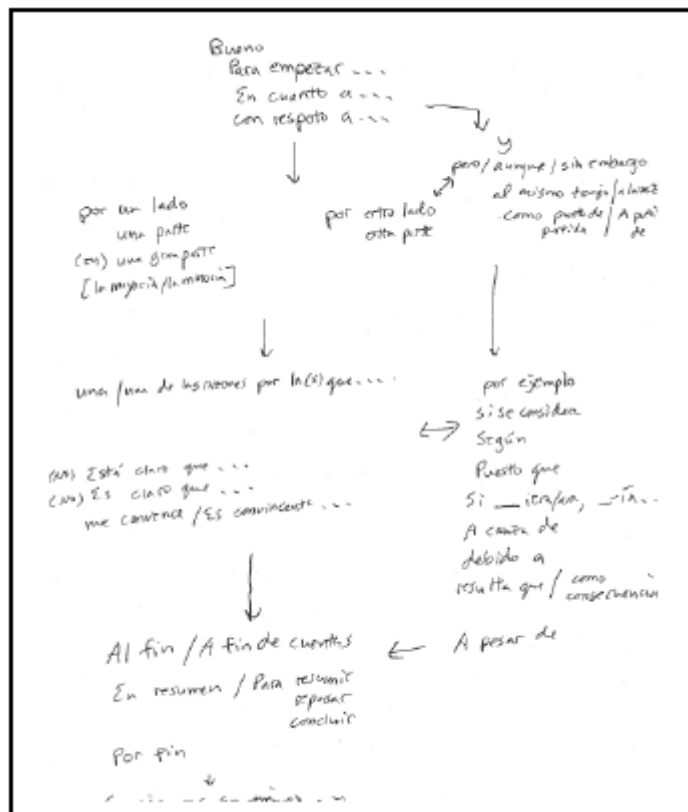 Bueno
Para empezar ...
En cuento a ...
con respeto a ...
y
pero / aunque / sin embargo
al mismo / a la vez
como parte de / A
partida de
por un lado
una parte
(en) una gran parte
[la mayoría / la minoría]
por otro lado
otra parte
una / una de las razones por la(s) que ....
por ejemplo
si se considera
Según
Puesto que
Si __iera/ara, __ía...
A causa de
debido a
resulta que / como
consecuencia
(no) Está claro que ...
(no) Es claro que ...
me convence / Es convincente ...
Al fin / A fin de cuentas
A pesar de
En resumen / Para resumir
repasar
concluir
Por fin